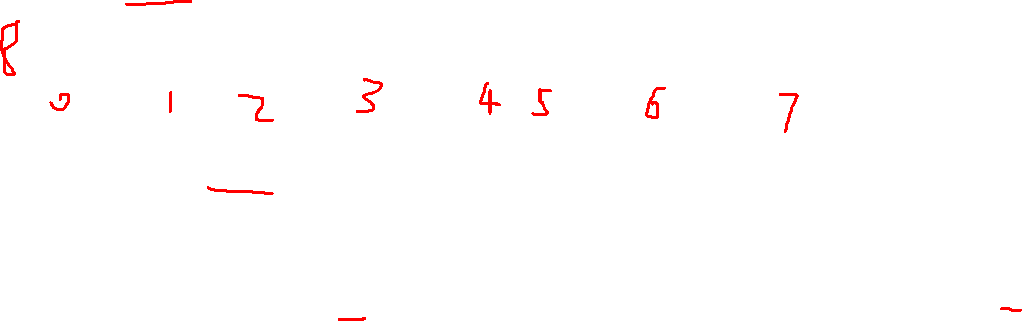 8
0 1 2 3 4 5 6 7